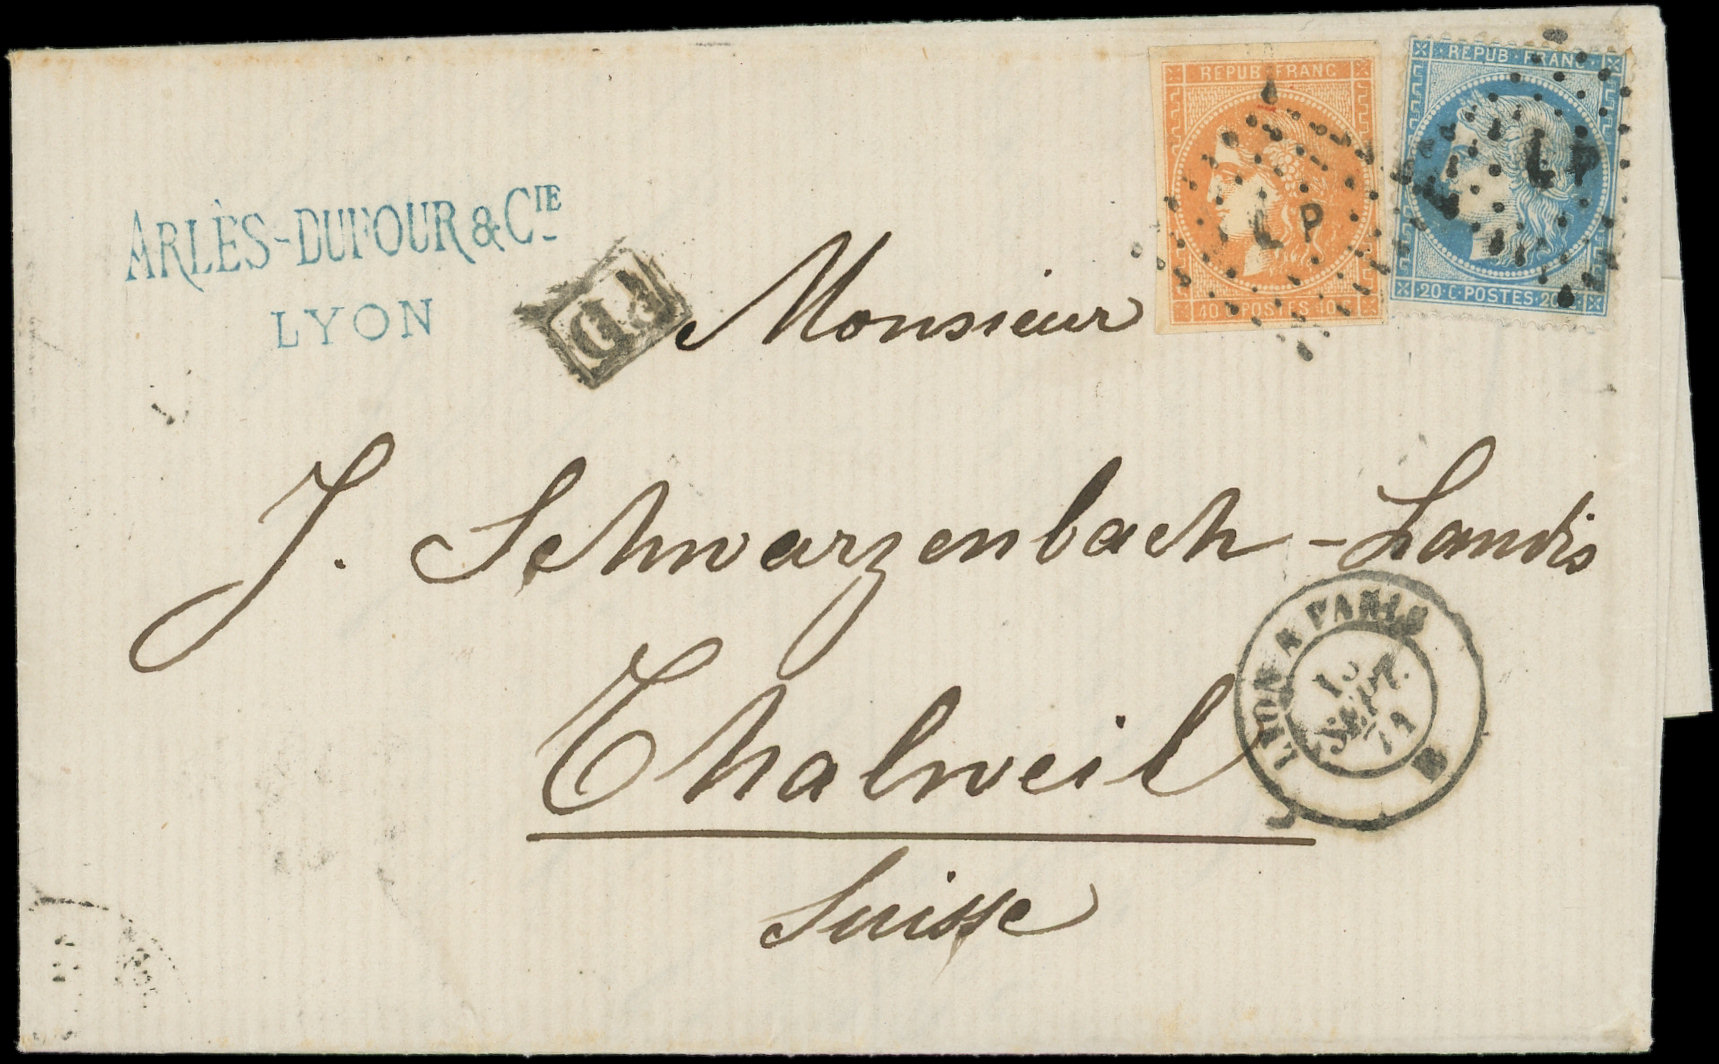 REPUB · FRANC
REPUB · FRANC
ARLÈS-DUFOUR & CIE
LYON
PD
Monsieur
L P
L P
40 C POSTES 40 C
20 · C · POSTES · 20 · C
J. Schwarzenbach - Landis
Thalweil
Suisse
LYON A PARIS
SEPT.
71
B